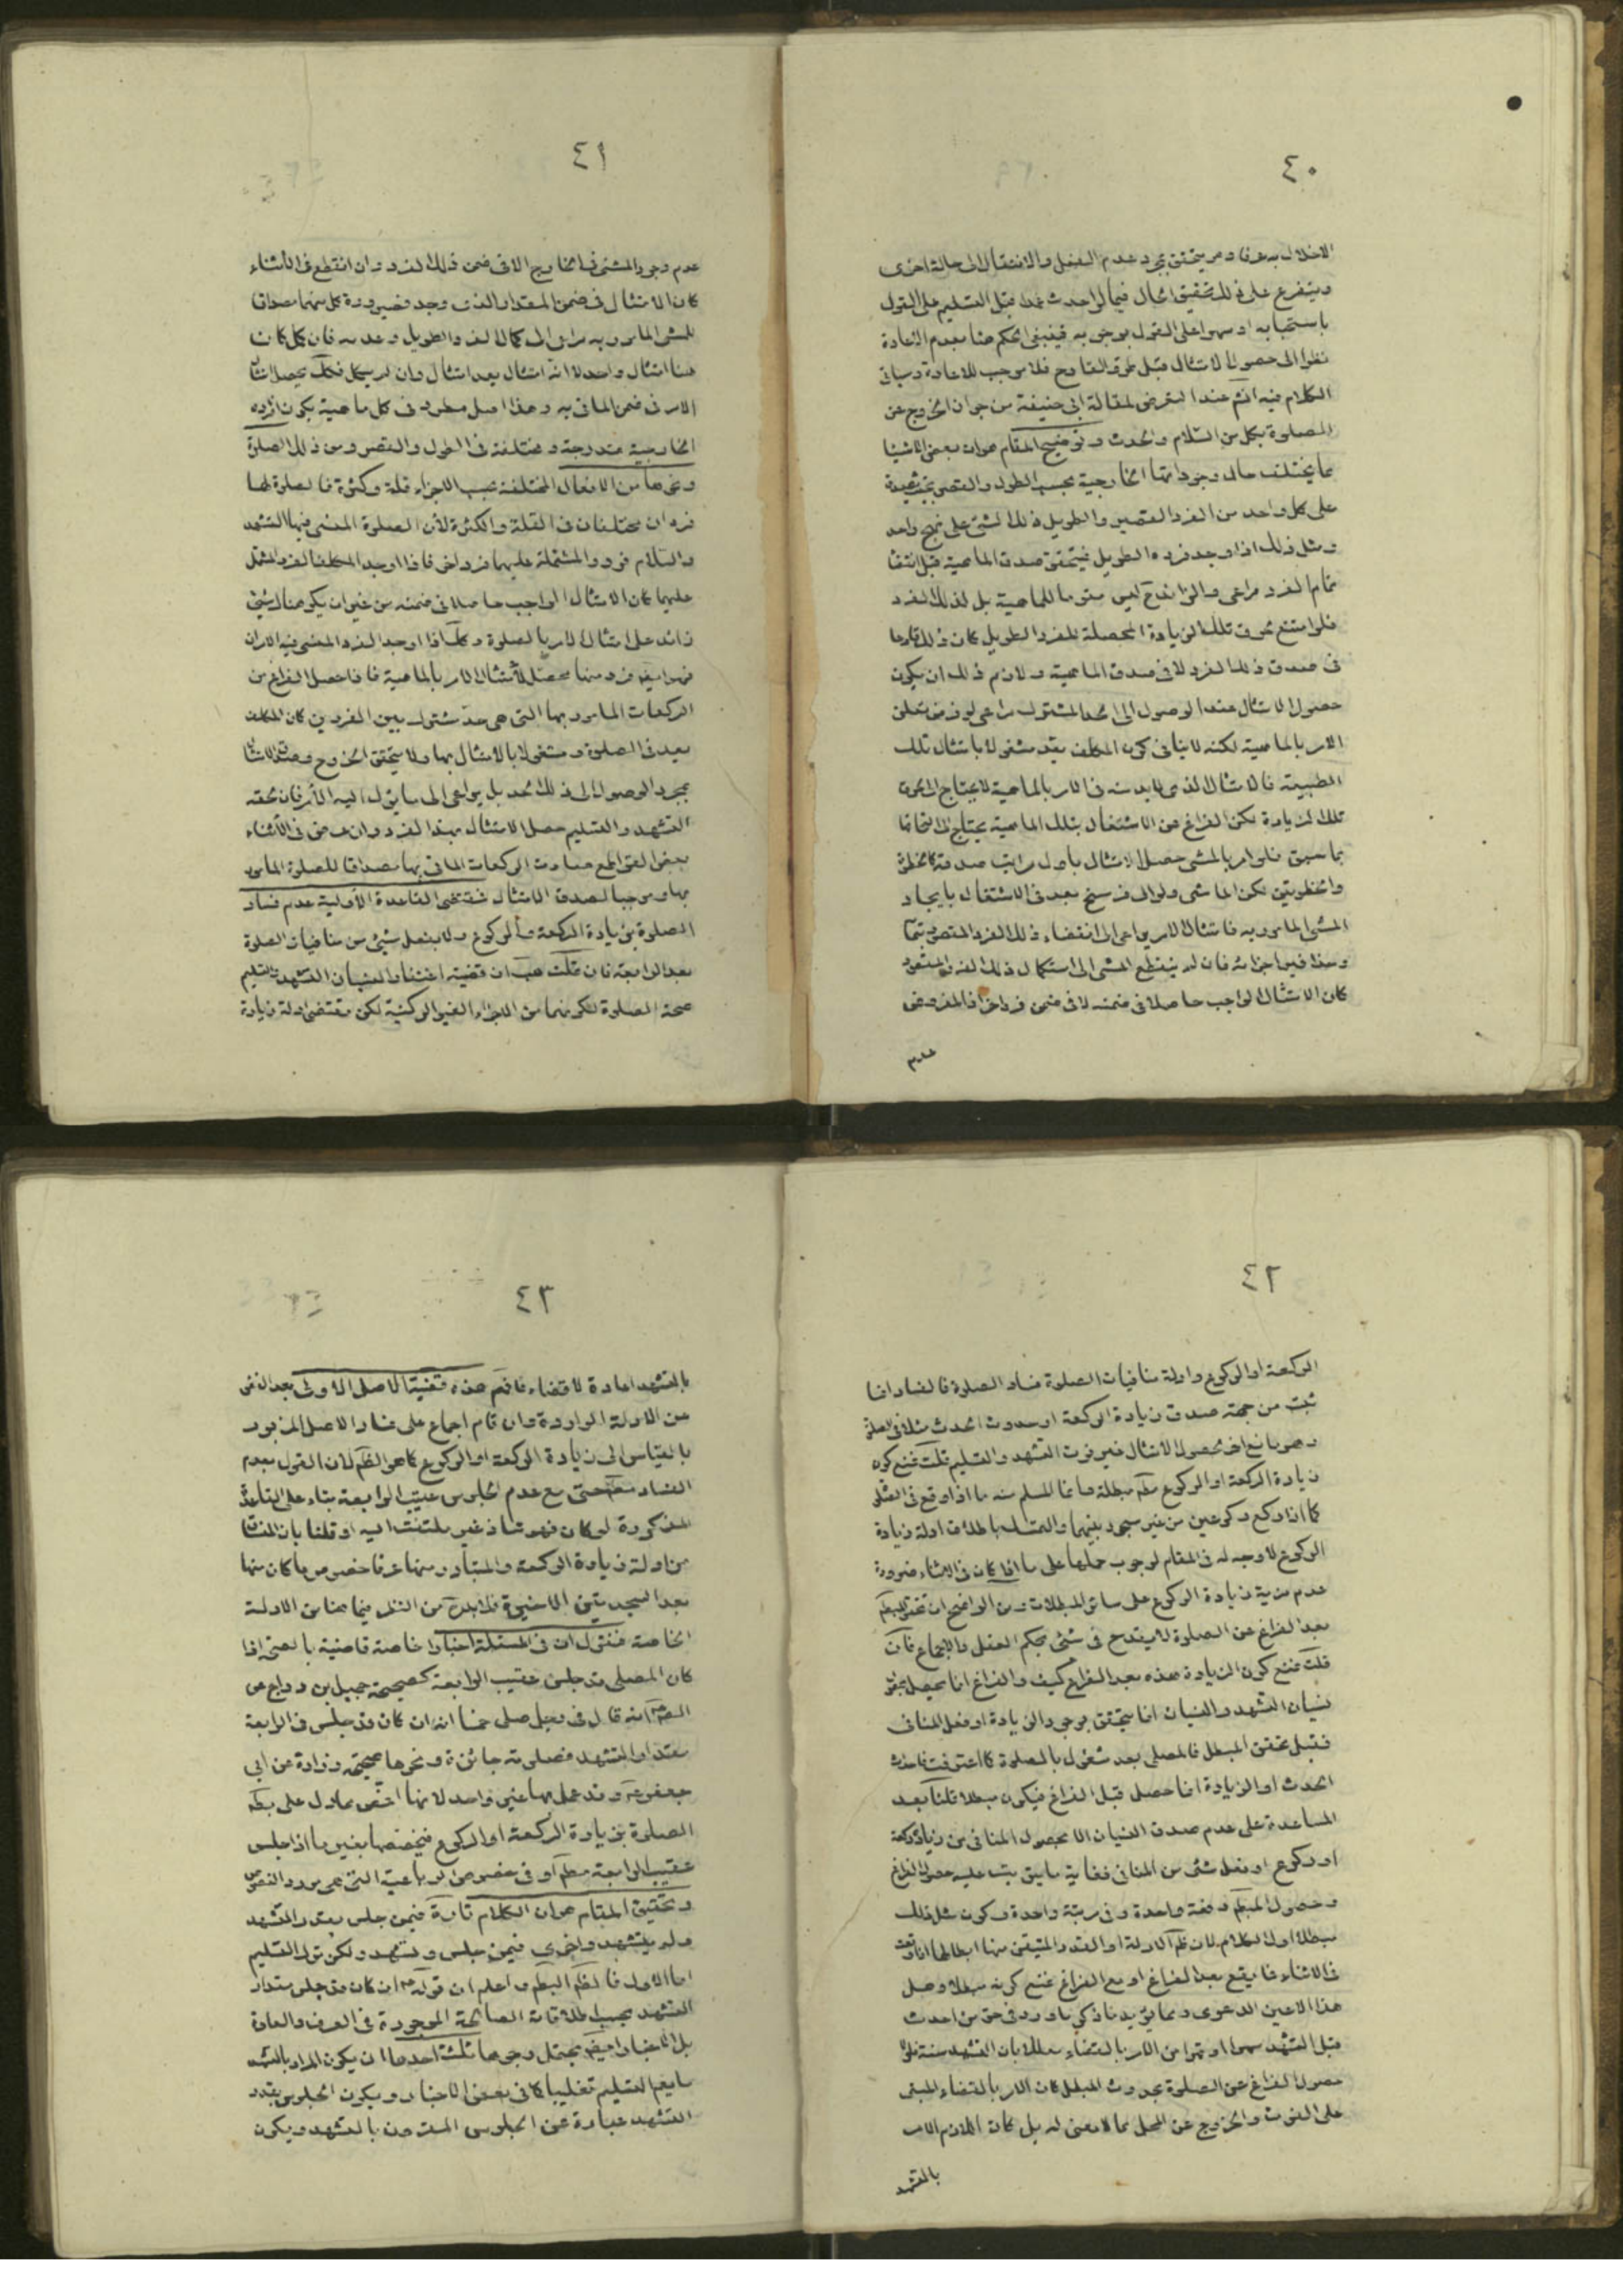 ٤٠
الاخلال به عرفا و مر يتحقق بمجرد عدم الفعل والانتقال الى حالة اخرى
ويتفرع على ذلك تحقيق الحال فيما لو احدث عمدا قبل التسليم على القول
باستحبابه او سهوا على القول بوجوبه فينبغى الحكم هنا بعدم الاعادة
نظرا الى حصول الامتثال قبل طرو القادح فلا موجب للاعادة وسياتى
الكلام فيه انشـ عند التعرض لمقالة ابى حنيفة من جواز الخروج عن
الصلوة بكل من السّلام والحدث وتوضيح المقام هو ان بعض الاشيا
مما يختلف حال وجوداتها الخارجية بحسب الطول والقصر بحيث يصدق
على كل واحد من الفرد القصير والطويل ذلك الشئ على نهج واحد
ومثل ذلك اذا وجد فرده الطويل فيتحقق صدق الماهية قبل انقضا
تمام الفرد مراعى والزائد ح ليس مقوما للماهية بل لذلك الفرد
فلو امتنع لحوق تلك الزيادة المحصلة للفرد الطويل كان ذلك قادحا
فى صدق ذلك الفرد لا فى صدق الماهية ولازم ذلك ان يكون
حصول الامتثال عند الوصول الى الحد المشترك مراعى لو فرض تعلق
الامر بالماهية لكنه لا ينافى كون المكلف بعد مشغولا بامتثال تلك
الطبيعة فالامتثال الذى لابد منه فى الامر بالماهية لا يحتاج الى لحوق
تلك الزيادة لكن الفراغ عن الاشتغال بتلك الماهية يحتاج الى التحاقها
بما سبق فلو امر بالمشى حصل الامتثال باول مراتب صدقه كالخطوة
والخطوتين لكن الماشى ولو الى فرسخ بعد فى الاشتغال بايجاد
المشى المامور به فامتثال الامر يراعى الى انقضاء ذلك الفرد المتصور تمامه
وهذا فيما اجزائه فان لم ينقطع المشى الى استكمال ذلك الفرد المقصود
كان الامتثال الواجب حاصلا فى ضمنه لا فى ضمن فرد اخر اذ المفروض
عدم
٤١
عدم وجود المشى فى الخارج الا فى ضمن ذلك الفرد وان انقطع فى الاثناء
كان الامتثال فى ضمن المقدار الذى وجد فصيرورة كل منهما مصداقا
للمشى المامور به مراعى الى كمال الفرد الطويل وعدمه فان كمل كان
هنا امتثال واحد لا انّه امتثال بعد امتثال وان لم يكمل فكك يحصل امتثال
الامر فى ضمن الماتى به وهذا اصل مطرد فى كل ماهية يكون افراده
الخارجية متدرجة ومختلفة فى الطول والقصر ومن ذلك الصلوة
ونحوها من الافعال المختلفة بحسب الاجزاء قلة وكثرة فالصلوة لها
فردان مختلفان فى القلة والكثرة لأن الصلوة المنسى فيها التشهد
والسّلام فرد والمشتملة عليهما فرد اخر فاذا اوجد المكلف الفرد المشتمل
عليهما كان الامتثال الواجب حاصلا فى ضمنه من غير ان يكون هناك شئ
زائد على امتثال الامر بالصلوة وكذا اذا اوجد الفرد المنسى فيه الامران
فهو ايضا فرد منها محصّل لأمتثال الامر بالماهية فاذا حصل الفراغ من
الركعات المامور بها التى هى حدّ مشترك بين الفردين كان المكلف
بعد فى الصلوة ومشغولا بالامتثال بها ولا يتحقق الخروج وصدق الامتثال
بمجرد الوصول الى ذلك الحد بل يراعى الى ما يئول اليه الأمر فان لحقه
التشهد والتسليم حصل الامتثال بهذا الفرد وان عرض فى الأثناء
بعض القواطع صارت الركعات الماتى بها مصداقا للصلوة المامور
بها وموجبا لصدق الامتثال فمقتضى القاعدة الأولية عدم فساد
الصلوة بزيادة الركعة والركوع ولا بفعل شئ من منافيات الصلوة
بعد الرابعة فان قلت هب ان قضية اغتفار نسيان التشهد والتسليم
صحة الصلوة لكونهما من الاجزاء الغير الركنية لكن مقتضى ادلة زيادة
٤٢
الركعة او الركوع وادلة منافيات الصلوة فساد الصلوة فالفساد انما
ثبت من جهة صدق زيادة الركعة او حدوث الحدث مثلا فى الصلوة
وهو مانع اخر لحصول الامتثال غير فوت التشهد والتسليم قلت نمنع كون
زيادة الركعة او الركوع مط مبطلة وانما المسلم منه ما اذا وقع فى الصلوة
كما اذا ركع ركوعين من غير سجود بينهما والتمسك باطلاق ادلة زيادة
الركوع لا وجه له فى المقام لوجوب حملها على ما اذا كان فى الاثناء ضرورة
عدم مزية زيادة الركوع على سائر المبطلات ومن الواضح ان تحقق المبطل
بعد الفراغ عن الصلوة لا يقدح فى شئ بحكم العقل والاجماع فان
قلت نمنع كون الزيادة هذه بعد الفراغ كيف والفراغ انما يحصل بتحقق
نسيان التشهد والنسيان انما يتحقق بوجود الزيادة او فعل المنافى
فقبل تحقق المبطل فالمصلى بعد مشغول بالصلوة كما اعترفت فاحداث
الحدث او الزيادة انما حصل قبل الفراغ فيكون مبطلا قلنا بعد
المساعدة على عدم صدق النسيان الا بحصول المنافى من زيادة ركعة
او ركوع او فعل شئ من المنافى فغاية ما يترتب عليه حصول الفراغ
وحصول المبطل دفعة واحدة وفى رتبة واحدة وكون مثل ذلك
مبطلا اول الكلام لان ظم الادلة او القدر المتيقن منها ابطالها اذا وقعت
فى الاثناء فما يقع بعد الفراغ او مع الفراغ نمنع كونه مبطلا وهل
هذا الا عين الدعوى ومما يؤيد ما ذكر ما ورد فى حق من احدث
قبل التشهد سهوا او تمرا من الامر بالقضاء معللا بان التشهد سنة فلولا
حصول الفراغ عن الصلوة بحدوث المبطل كان الامر بالقضاء المبنى
على الفوت والخروج عن المحل مما لا معنى له بل كان اللازم الامر
بالتشهد
٤٣
بالتشهد اعادة لا قضاء فافهم هذه قضية الاصل الاولى بعد الغض
عن الادلة الواردة وان قام اجماع على فساد الاصل المزبور
بالقياس الى زيادة الركعة او الركوع كما هو الظم لان القول بعدم
الفساد مط حتى مع عدم الجلوس عقيب الرابعة بناء على القاعدة
المذكورة لو كان فهو شاذ غير ملتفت اليه او قلنا بان المنساق
من ادلة زيادة الركعة والمتبادر منها عرفا خصوص ما كان منها
بعد السجدتين الاخيرة فلا بد ح من النظر فيما هنا من الادلة
الخاصة فنقول ان فى المسئلة اخبارا خاصة قاضية بالصحة اذا
كان المصلى قد جلس عقيب الرابعة كصحيحة جميل بن دراج عن
الصم انه قال فى رجل صلى خمسا انه ان كان قد جلس فى الرابعة
مقدار التشهد فصلوته جائزة ونحوها صحيحة زرارة عن ابى
جعفر ع وقد عمل بها غير واحد لانها اخصّ مما دل على بطـ
الصلوة بزيادة الركعة او الركوع فيخصصها بغير ما اذا جلس
عقيب الرابعة مط او فى خصوص الرباعية التى هى مورد النصوص
وتحقيق المقام هو ان الكلام تارة فيمن جلس بقدر التشهد
ولم يتشهد واخرى فيمن جلس وتشهد ولكن ترك التسليم
اما الاول فالظم البطم واعلم ان قوله ع ان كان قد جلس مقدار
التشهد بحسب اطلاقاته الصالحة الموجودة فى العرف والعادة
بل الاخبار ايضا يحتمل وجوها ثلثة احدها ان يكون المراد بالتشهد
ما يعم التسليم تغليبا كما فى بعض الاخبار ويكون الجلوس بقدر
التشهد عبارة عن الجلوس المقرون بالتشهد ويكون